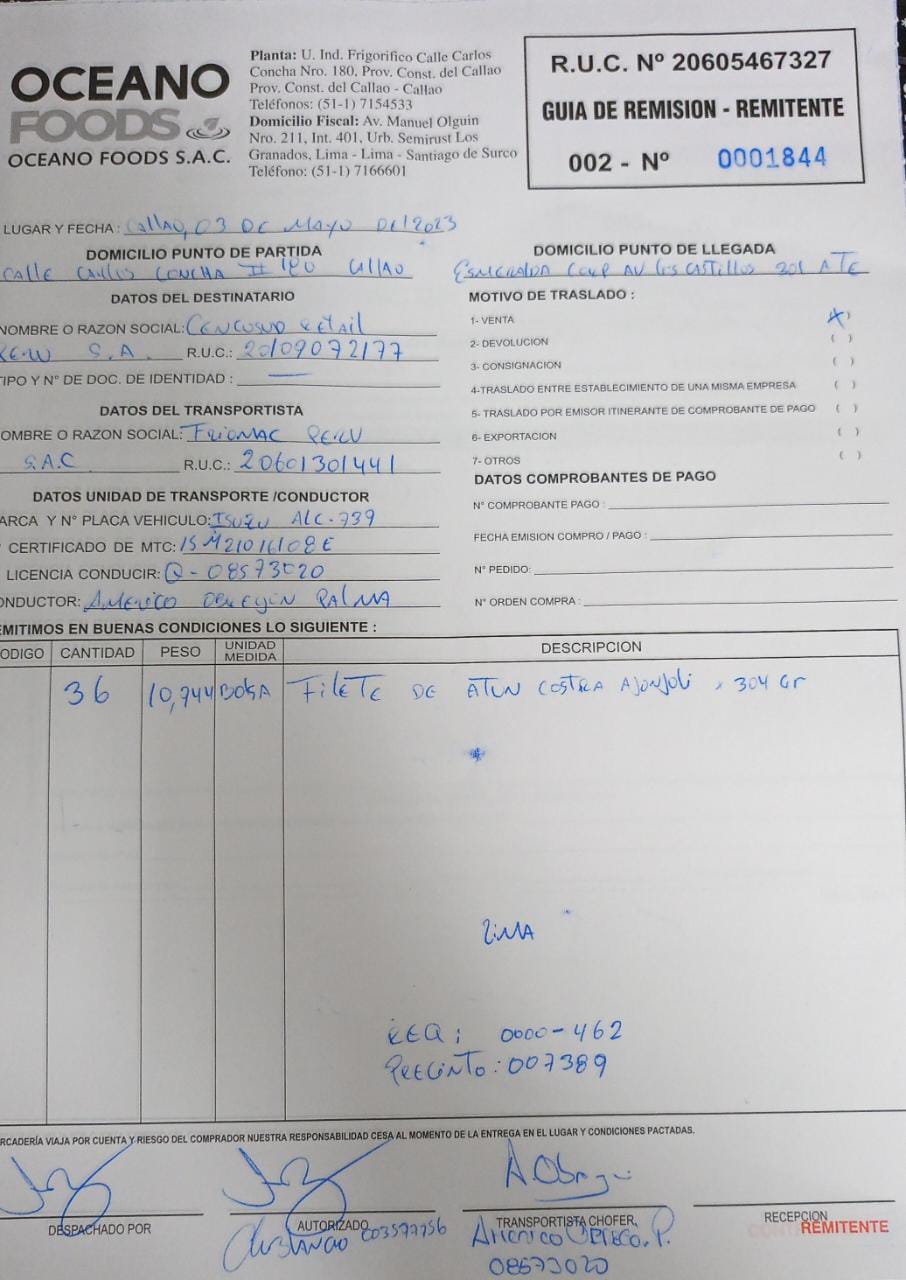 OCEANO
FOODS
OCEANO FOODS S.A.C.
Planta: U. Ind. Frigorifico Calle Carlos
Concha Nro. 180, Prov. Const. del Callao
Prov. Const. del Callao - Callao
Teléfonos: (51-1) 7154533
Domicilio Fiscal: Av. Manuel Olguin
Nro. 211, Int. 401, Urb. Semirust Los
Granados, Lima - Lima - Santiago de Surco
Teléfono: (51-1) 7166601
R.U.C. Nº 20605467327
GUIA DE REMISION - REMITENTE
002 - Nº 0001844
LUGAR Y FECHA : Callao, 03 DE Mayo Del 2023
DOMICILIO PUNTO DE PARTIDA
CALLE Carlos CONCHA # 180 Callao
DOMICILIO PUNTO DE LLEGADA
ESMERALDA CORP AV los CASTILLOS 201 ATE
DATOS DEL DESTINATARIO
NOMBRE O RAZON SOCIAL: CENCOSUD RETAIL
PERU S.A. R.U.C.: 20109072177
TIPO Y Nº DE DOC. DE IDENTIDAD : —
MOTIVO DE TRASLADO :
1- VENTA (X)
2- DEVOLUCION ( )
3- CONSIGNACION ( )
4-TRASLADO ENTRE ESTABLECIMIENTO DE UNA MISMA EMPRESA ( )
5- TRASLADO POR EMISOR ITINERANTE DE COMPROBANTE DE PAGO ( )
6- EXPORTACION ( )
7- OTROS ( )
DATOS DEL TRANSPORTISTA
OMBRE O RAZON SOCIAL: FRIOMAC PERU
S.A.C R.U.C.: 20601301441
DATOS UNIDAD DE TRANSPORTE /CONDUCTOR
ARCA Y Nº PLACA VEHICULO: ISUZU ALC-739
CERTIFICADO DE MTC: 15M21016108E
LICENCIA CONDUCIR: Q-08573020
ONDUCTOR: AMERICO OBREGON PALMA
DATOS COMPROBANTES DE PAGO
Nº COMPROBANTE PAGO :
FECHA EMISION COMPRO / PAGO :
Nº PEDIDO:
Nº ORDEN COMPRA :
EMITIMOS EN BUENAS CONDICIONES LO SIGUIENTE :
ODIGO CANTIDAD PESO UNIDAD MEDIDA DESCRIPCION
36 10,944 BOLSA FILETE DE ATUN COSTRA AJONJOLI x 304 Gr
LIMA
REQ: 0000-462
PRECINTO: 007389
RCADERÍA VIAJA POR CUENTA Y RIESGO DEL COMPRADOR NUESTRA RESPONSABILIDAD CESA AL MOMENTO DE LA ENTREGA EN EL LUGAR Y CONDICIONES PACTADAS.
A.Obreg
DESPACHADO POR
AUTORIZADO
TRANSPORTISTA CHOFER,
RECEPCION
REMITENTE
08573020